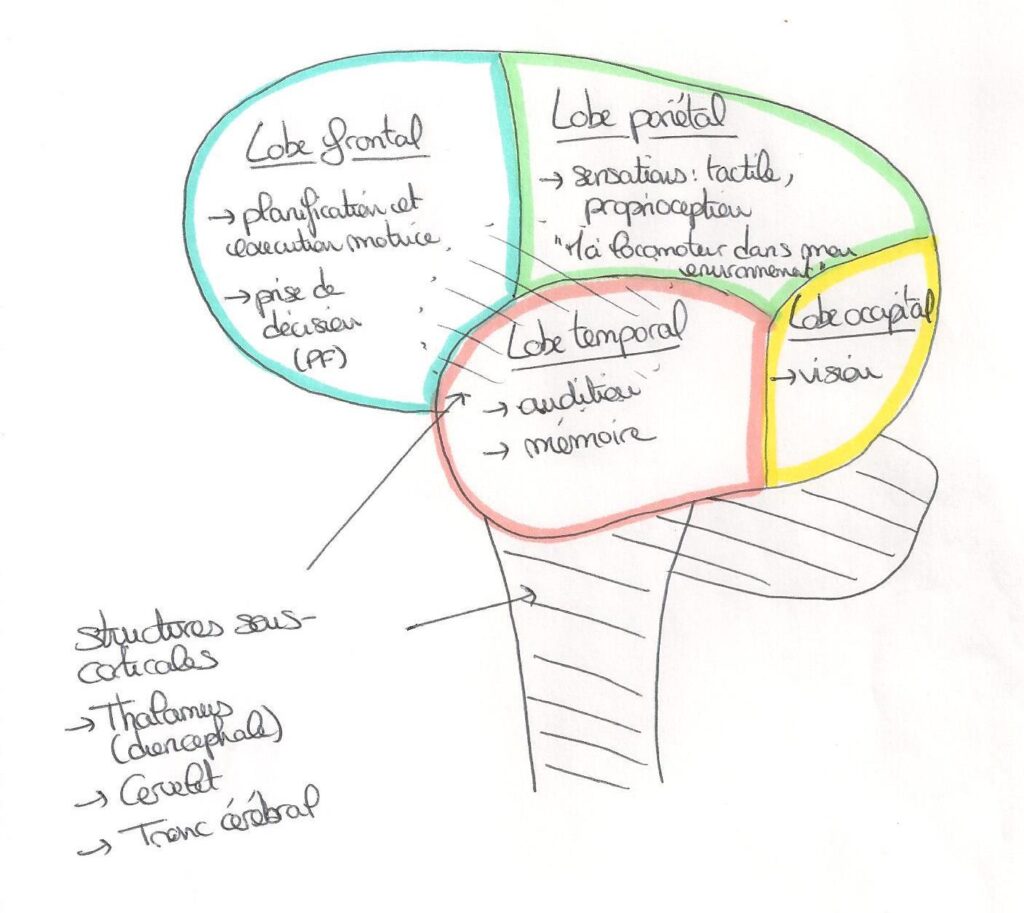 Lobe frontal
→ planification et
exécution motrice
→ prise de
décision
(PF)
Lobe pariétal
→ sensations : tactile,
proprioception
"Moi locomoteur dans mon
environnement"
Lobe temporal
→ audition
→ mémoire
Lobe occipital
→ vision
structures sous-
corticales
→ Thalamus
(diencephale)
→ Cervelet
→ Tronc cérébral